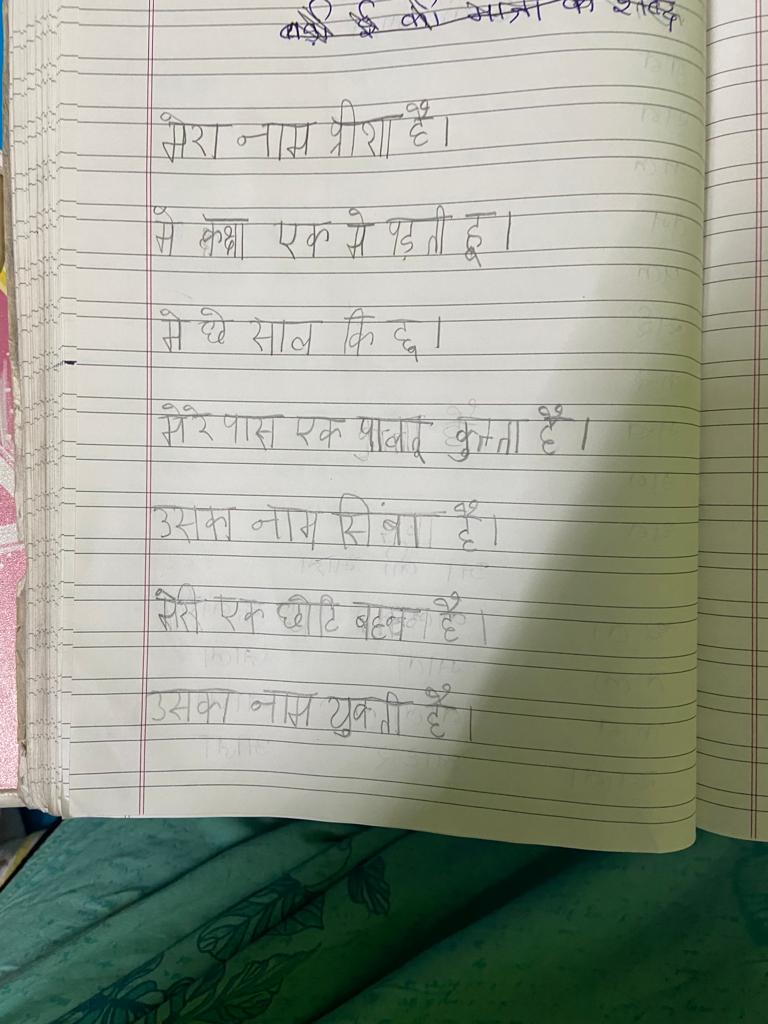 बड़ी ई की मात्रा के शब्द
मेरा नाम प्रीशा है।
मे कक्षा एक मे पड़ती हू।
मे छे साल कि हू।
मेरे पास एक पालतू कुत्ता है।
उसका नाम सिंबा है।
मेरी एक छोटि बहन है।
उसका नाम युक्ती है।